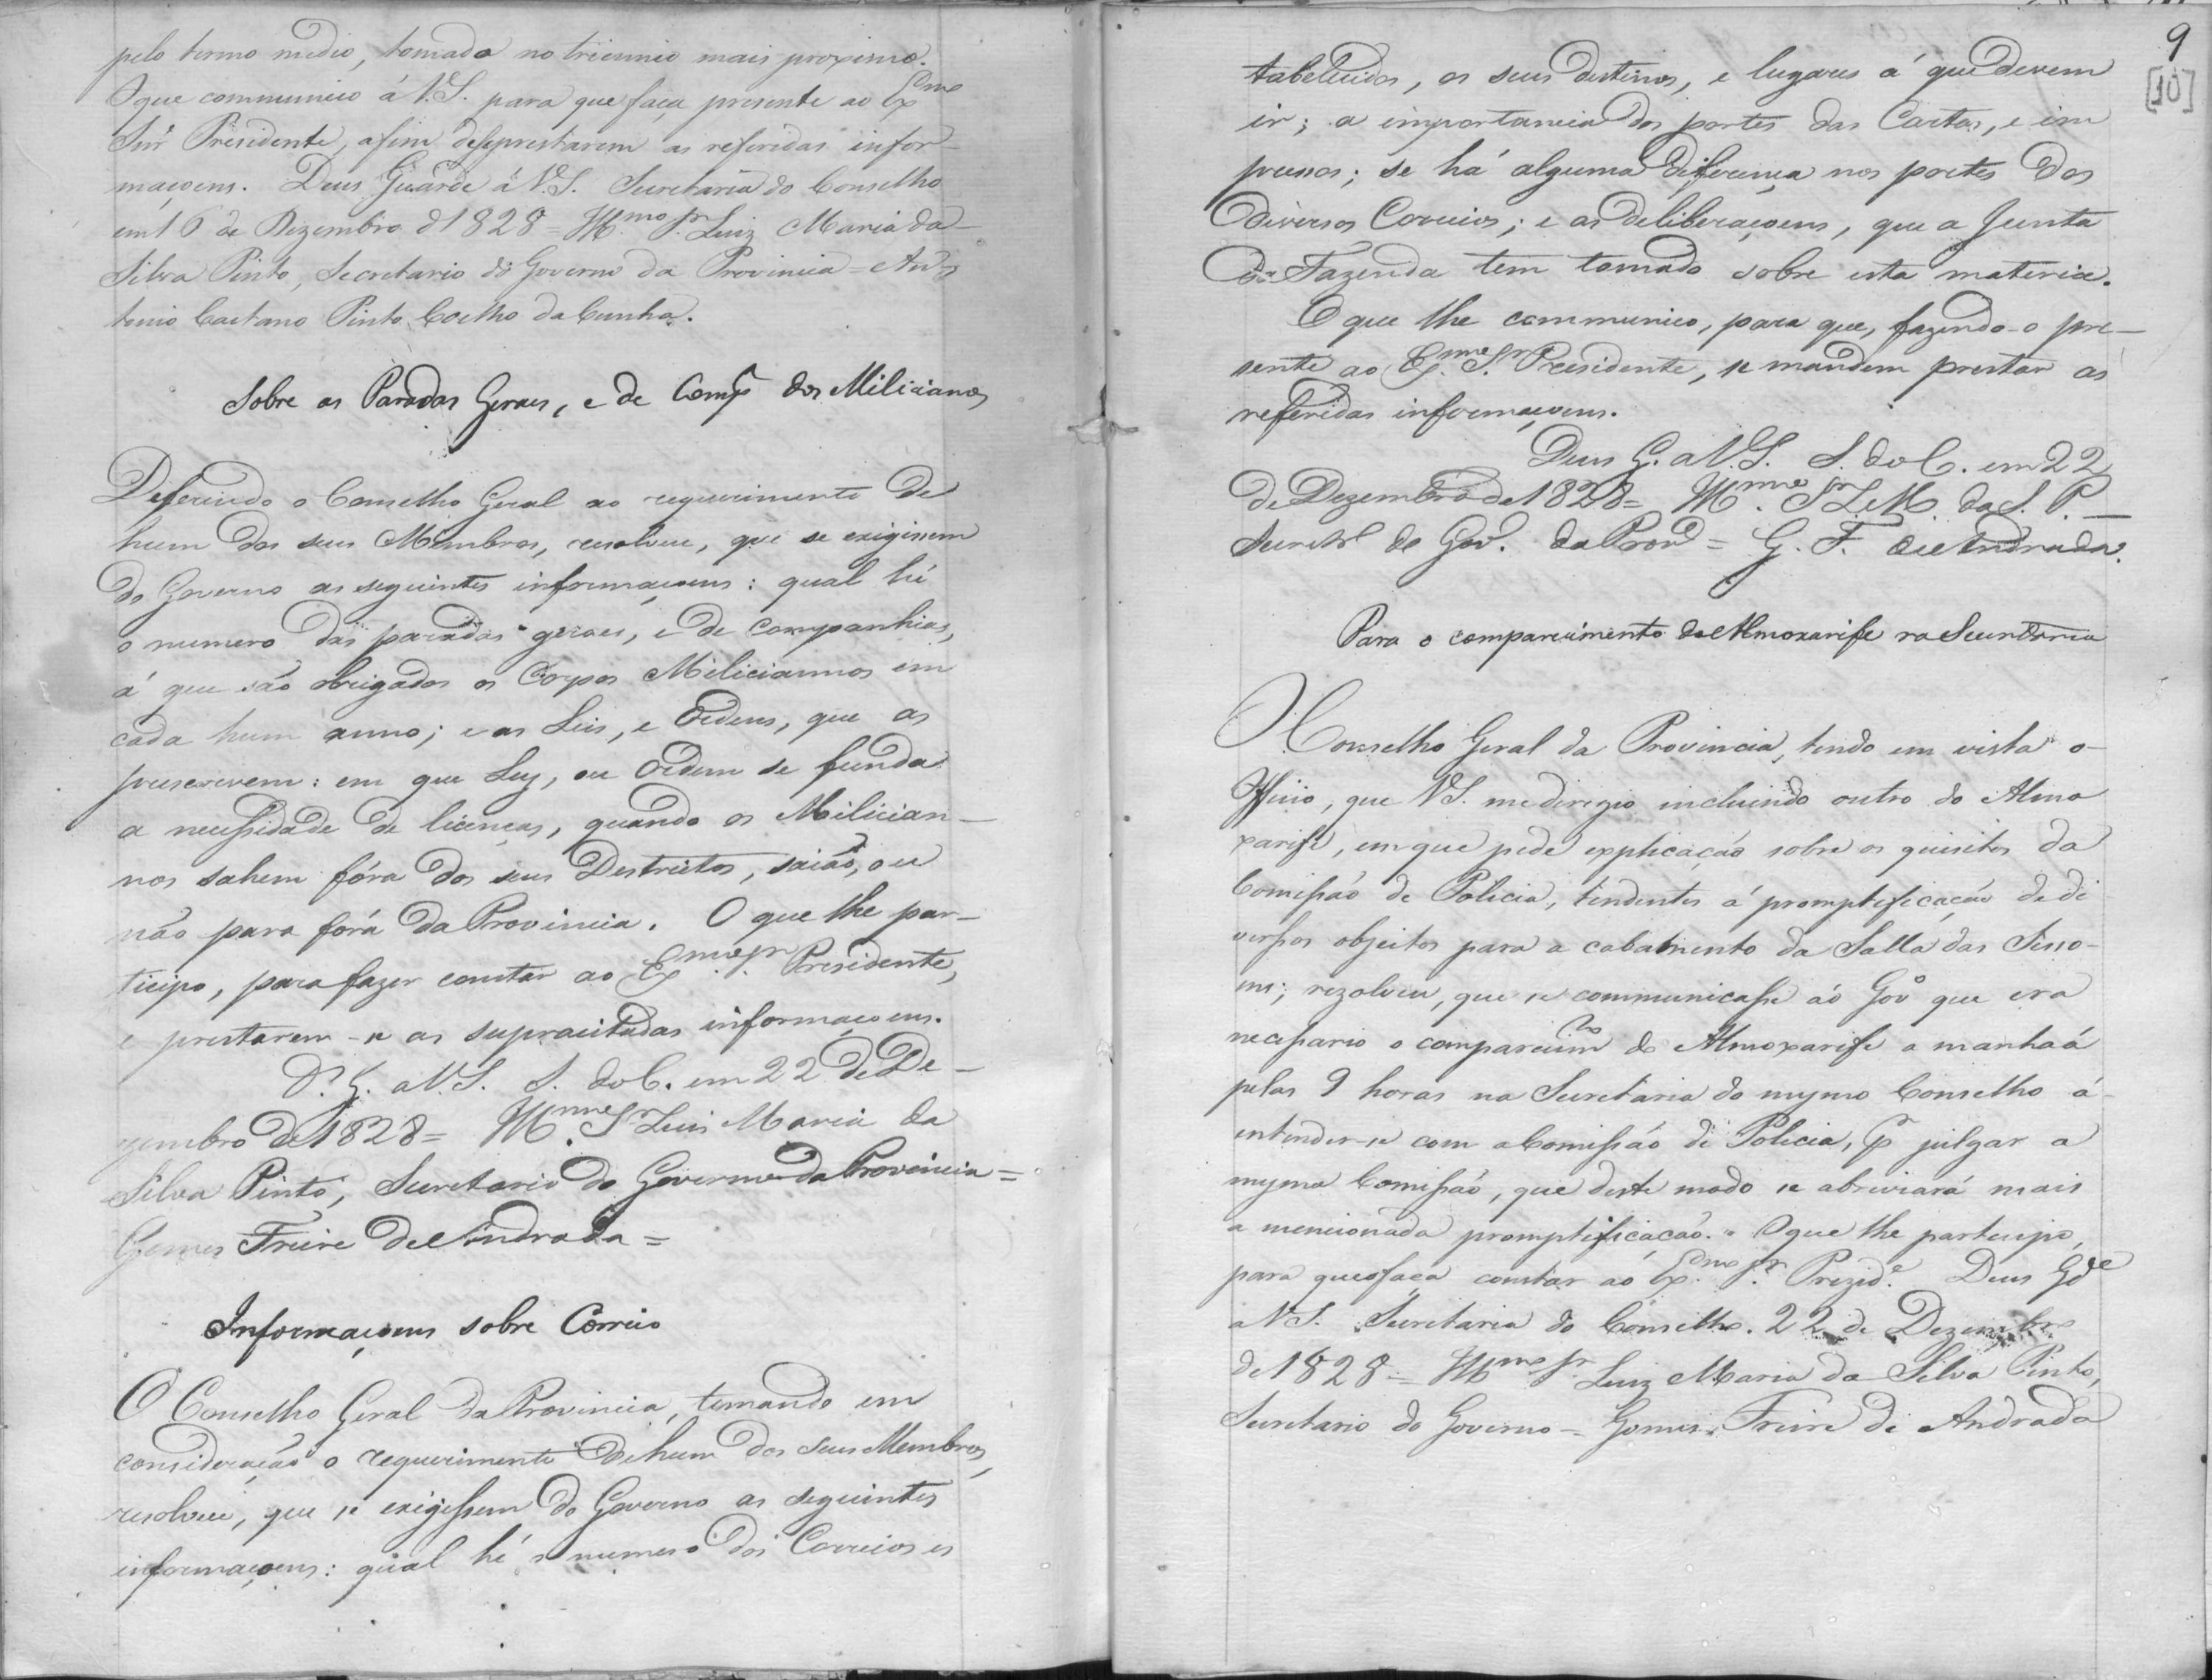 pelo termo medio, tomado no triennio mais proximo.
O que communico á V.S. para que faça presente ao Ex.mo
Snr Presidente, afim de se prestarem as referidas infor-
maçoens. Deus Guarde á V.S. Secretaria do Conselho
em 16 de Dezembro d 1828 = Ill.mo Sr. Luiz Maria da
Silva Pinto, Secretario do Governo da Provincia = An-
tonio Caetano Pinto Coelho da Cunha.
Sobre as Paradas Geraes, e de Comp.as dos Milicianos
Deferindo o Conselho Geral ao requerimento de
hum dos seus Membros, resolveu, que se exigissem
do Governo as seguintes informaçoens: qual hé
o numero das paradas geraes, e de companhias,
á que são obrigados os Corpos Miliciannos em
cada hum anno; e as Leis, e Ordens, que as
prescrevem: em que Ley, ou Ordem se funda
a necessidade de licenças, quando os Milician-
nos sahem fóra dos seus Destrictos, saião, ou
não para fóra da Provincia. O que lhe par-
ticipo, para fazer constar ao Ex.mo Sr. Presidente,
e prestarem-se as supracitadas informaçoens.
D.s G. a V.S. S. do C. em 22 de De-
zembro de 1828 = Ill.mo Sr. Luis Maria da
Silva Pinto, Secretario do Governo da Provincia =
Gomes Freire de Andrada =
Informaçoens sobre Correio
O Conselho Geral da Provincia, tomando em
consideração o requerimento de hum dos seus Membros,
resolveu, que se exigissem do Governo as seguintes
informaçoens: qual hé o numero dos Correios es
9
[10]
tabelecidos, os seus destinos, e lugares á que devem
ir; a importancia dos portes das Cartas, e im
pressos; se há alguma diferença nos portes dos
diversos Correios; e as deliberaçoens, que a Junta
da Fazenda tem tomado sobre esta materia.
O que lhe communico, para que, fazendo-o pre-
sente ao Ex.mo Sr. Presidente, se mandem prestar as
referidas informaçoens.
Deus G. a V.S. S. do C. em 22
de Dezembro de 1828 = Ill.mo Sr. L. M. da S. P. -
Secretr.o do Gov.o da Prov.a = G. F. de Andrada.
Para o comparecimento do Almoxarife na Secretaria
O Conselho Geral da Provincia, tendo em vista o-
Officio, que V.S. me deregio incluindo outro do Almo
xarife, em que pede explicação sobre os quisitos da
Comissão de Policia, tendentes á promptificação de di
versos objeitos para a cabamento da Salla das Sesso-
ens; rezolveu, que se communicasse áo Gov.o que era
necessario o comparecim.to do Almoxarife a manhaá
pelas 9 horas na Secretaria do mesmo Conselho á
entender-se com a Comissão de Policia, p.r julgar a
mesma Comissão, que deste modo se abreviará mais
a mencionada promptificação. O que lhe participo,
para que o faça constar áo Ex.mo Sr. Prezid.e Deus G.de
a V.S. Secretaria do Conselho. 22 de Dezembro
de 1828 = Ill.mo Sr. Luiz Maria da Silva Pinto,
Secretario do Governo = Gomes Freire de Andrada